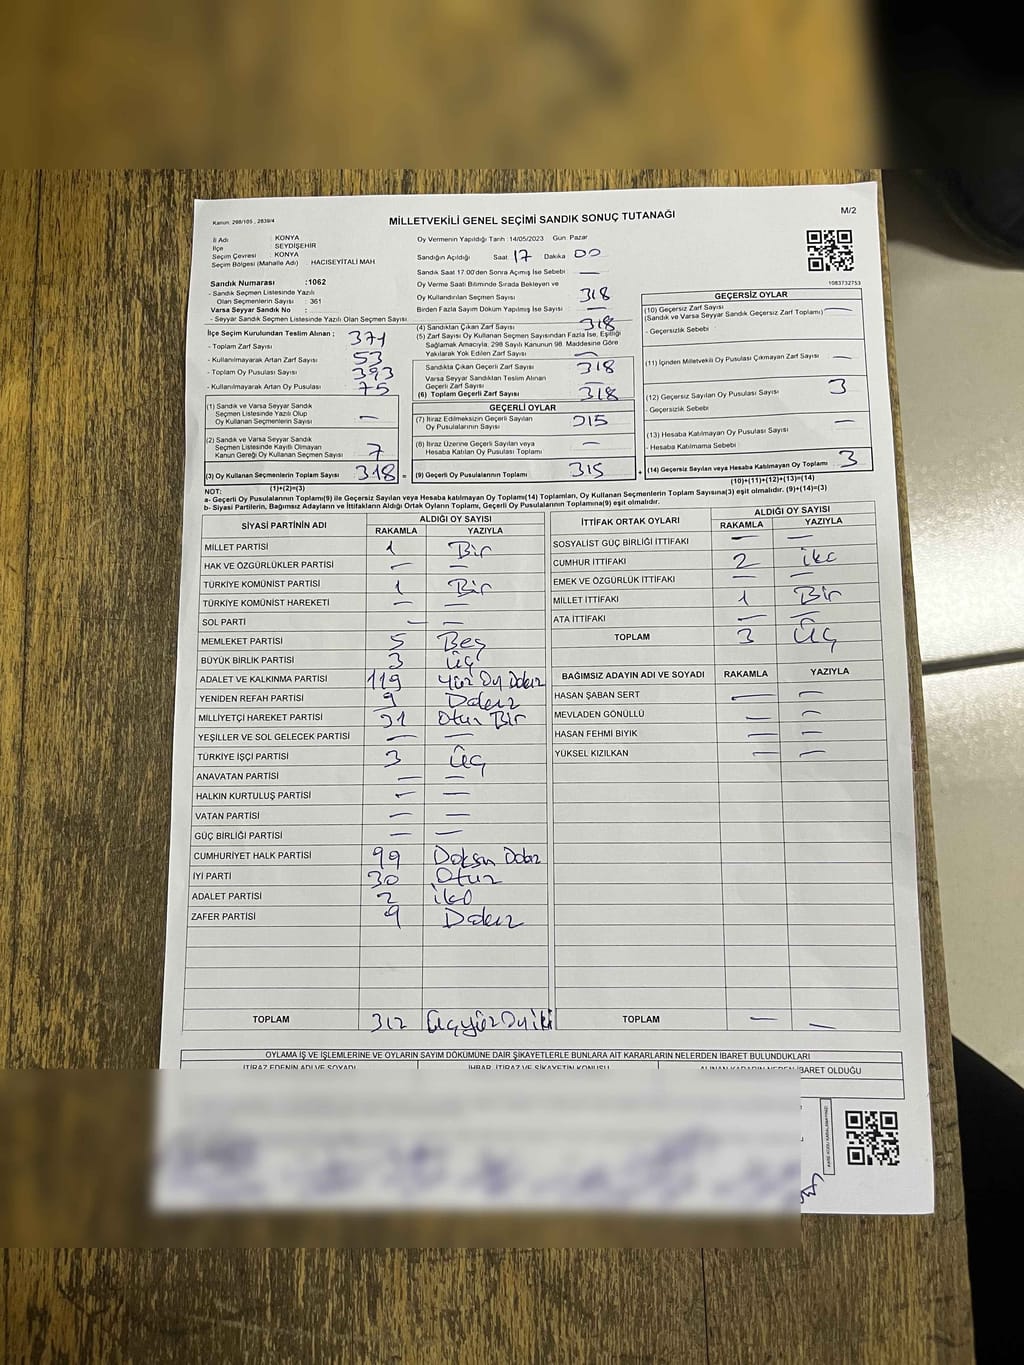 Kanun: 298/105 , 2839/4
MİLLETVEKİLİ GENEL SEÇİMİ SANDIK SONUÇ TUTANAĞI
M/2
İl Adı : KONYA
İlçe : SEYDİŞEHİR
Seçim Çevresi : KONYA
Seçim Bölgesi (Mahalle Adı) : HACISEYİTALİ MAH
Sandık Numarası :1062
- Sandık Seçmen Listesinde Yazılı
Olan Seçmenlerin Sayısı : 361
Varsa Seyyar Sandık No :
- Seyyar Sandık Seçmen Listesinde Yazılı Olan Seçmen Sayısı:
İlçe Seçim Kurulundan Teslim Alınan ;
- Toplam Zarf Sayısı 371
- Kullanılmayarak Artan Zarf Sayısı 53
- Toplam Oy Pusulası Sayısı 393
- Kullanılmayarak Artan Oy Pusulası 75
(1) Sandık ve Varsa Seyyar Sandık
Seçmen Listesinde Yazılı Olup
Oy Kullanan Seçmen Sayısı —
(2) Sandık ve Varsa Seyyar Sandık
Seçmen Listesinde Kayıtlı Olmayan
Kanun Gereği Oy Kullanan Seçmen Sayısı 7
(3) Oy Kullanan Seçmenlerin Toplam Sayısı 318 =
(1)+(2)=(3)
Oy Vermenin Yapıldığı Tarih :14/05/2023 Gün: Pazar
Sandığın Açıldığı Saat 17 Dakika 00
Sandık Saat 17.00'den Sonra Açılmış İse Sebebi —
Oy Verme Saati Bitiminde Sırada Bekleyen ve
Oy Kullandırılan Seçmen Sayısı 318
Birden Fazla Sayım Döküm Yapılmış İse Sayısı —
(4) Sandıktan Çıkan Zarf Sayısı 318
(5) Zarf Sayısı Oy Kullanan Seçmen Sayısından Fazla İse, Eşitliği
Sağlamak Amacıyla, 298 Sayılı Kanunun 98. Maddesine Göre
Yakılarak Yok Edilen Zarf Sayısı —
Sandıkta Çıkan Geçerli Zarf Sayısı 318
Varsa Seyyar Sandıktan Teslim Alınan
Geçerli Zarf Sayısı —
(6) Toplam Geçerli Zarf Sayısı 318
GEÇERLİ OYLAR
(7) İtiraz Edilmeksizin Geçerli Sayılan
Oy Pusulalarının Sayısı 315
(8) İtiraz Üzerine Geçerli Sayılan veya
Hesaba Katılan Oy Pusulası Toplamı —
(9) Geçerli Oy Pusulalarının Toplamı 315 +
1083732753
GEÇERSİZ OYLAR
(10) Geçersiz Zarf Sayısı
(Sandık ve Varsa Seyyar Sandık Geçersiz Zarf Toplamı) —
- Geçersizlik Sebebi :
(11) İçinden Milletvekili Oy Pusulası Çıkmayan Zarf Sayısı —
(12) Geçersiz Sayılan Oy Pusulası Sayısı 3
- Geçersizlik Sebebi :
(13) Hesaba Katılmayan Oy Pusulası Sayısı —
- Hesaba Katılmama Sebebi :
(14) Geçersiz Sayılan veya Hesaba Katılmayan Oy Toplamı 3
(10)+(11)+(12)+(13)=(14)
NOT:
a- Geçerli Oy Pusulalarının Toplamı(9) ile Geçersiz Sayılan veya Hesaba katılmayan Oy Toplam(14) Toplamları, Oy Kullanan Seçmenlerin Toplam Sayısına(3) eşit olmalıdır. (9)+(14)=(3)
b- Siyasi Partilerin, Bağımsız Adayların ve İttifakların Aldığı Ortak Oyların Toplamı, Geçerli Oy Pusulalarının Toplamına(9) eşit olmalıdır.
SİYASİ PARTİNİN ADI ALDIĞI OY SAYISI
RAKAMLA YAZIYLA
MİLLET PARTİSİ 1 Bir
HAK VE ÖZGÜRLÜKLER PARTİSİ — —
TÜRKİYE KOMÜNİST PARTİSİ 1 Bir
TÜRKİYE KOMÜNİST HAREKETİ — —
SOL PARTİ — —
MEMLEKET PARTİSİ 5 Beş
BÜYÜK BİRLİK PARTİSİ 3 üç
ADALET VE KALKINMA PARTİSİ 119 Yüz On Dokuz
YENİDEN REFAH PARTİSİ 9 Dokuz
MİLLİYETÇİ HAREKET PARTİSİ 31 Otuz Bir
YEŞİLLER VE SOL GELECEK PARTİSİ — —
TÜRKİYE İŞÇİ PARTİSİ 3 Üç
ANAVATAN PARTİSİ — —
HALKIN KURTULUŞ PARTİSİ — —
VATAN PARTİSİ — —
GÜÇ BİRLİĞİ PARTİSİ — —
CUMHURİYET HALK PARTİSİ 99 Doksan Dokuz
İYİ PARTİ 30 Otuz
ADALET PARTİSİ 2 iki
ZAFER PARTİSİ 9 Dokuz
TOPLAM 312 Üçyüz On iki
İTTİFAK ORTAK OYLARI ALDIĞI OY SAYISI
RAKAMLA YAZIYLA
SOSYALİST GÜÇ BİRLİĞİ İTTİFAKI — —
CUMHUR İTTİFAKI 2 iki
EMEK VE ÖZGÜRLÜK İTTİFAKI — —
MİLLET İTTİFAKI 1 Bir
ATA İTTİFAKI — —
TOPLAM 3 Üç
BAĞIMSIZ ADAYIN ADI VE SOYADI RAKAMLA YAZIYLA
HASAN ŞABAN SERT — —
MEVLADEN GÖNÜLLÜ — —
HASAN FEHMİ BIYIK — —
YÜKSEL KIZILKAN — —
TOPLAM — —
OYLAMA İŞ VE İŞLEMLERİNE VE OYLARIN SAYIM DÖKÜMÜNE DAİR ŞİKAYETLERLE BUNLARA AİT KARARLARIN NELERDEN İBARET BULUNDUKLARI
İTİRAZ EDENİN ADI VE SOYADI İHBAR, İTİRAZ VE ŞİKAYETİN KONUSU ALINAN KARARIN NEDEN İBARET OLDUĞU